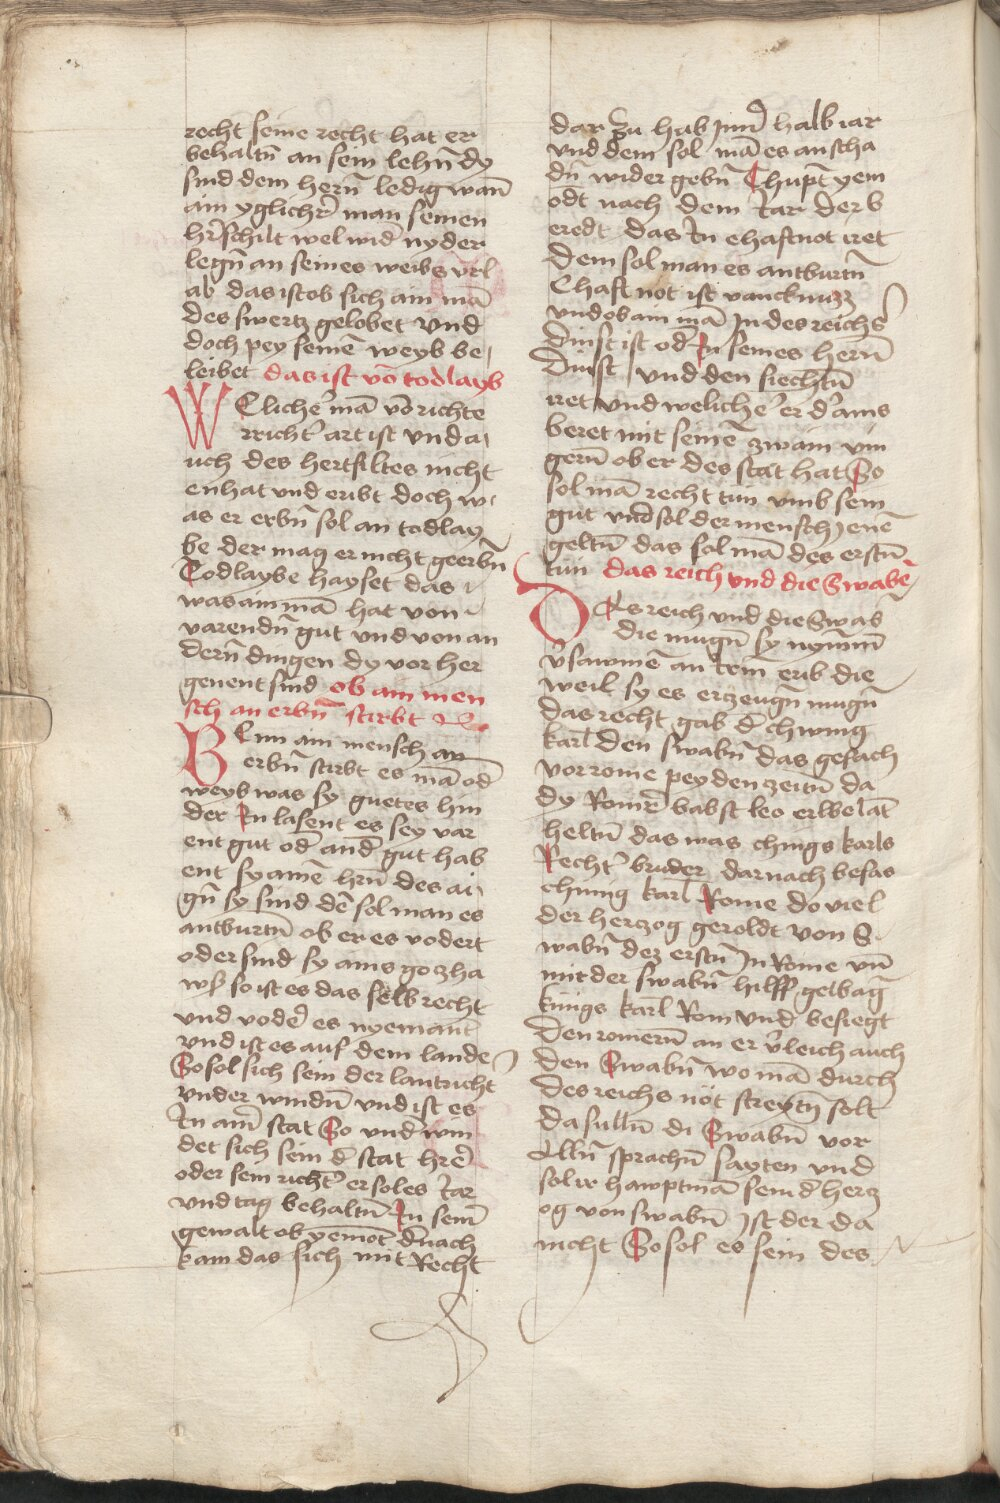 recht seine recht hat er
behaltn̄ an sein lehn̄ dy
sind dem hern̄ ledig wan̄
ain yglichr̄ man seinen
hr̄schilt wel wid̄ nyder
legn̄ an seines weibs vrl
ab das ist ob sich ain mā
des swertz gelobet vnd
doch pey seinē weyb be
leibet das ist vō todlayb
WElichē mā vō richte
rricht᷑ art ist vnd a
uch des hertsiltes nicht
enhat vnd eribt doch w
as er erbn̄ sol an todlay
be der mag er nicht geerbn̄
Todlaybe hayset das
was ain mā hat von
varendn̄ gut vnd von an
dern̄ dingen dy vor her
genent sind ob ain men
sch an erbn̄ stirbt
BEnn ain mensch an
erbn̄ stirbt es mā od̄
weyb was sy guetes hin
der In lasent es sey var
ent gut od̄ and̄ gut hab
ent sy ainē hrn̄ des ai
gn̄ sy sind dē sol man es
antburtn̄ ob er es vodert
oder sind sy ains gozha
ws so ist es das selb recht
vnd voder̄ es nyemant
vnd ist es auf dem lande
So sol sich sein der lantricht
vnder windn̄ vnd ist es
In am̄ stat So vnd̄ win
det sich sein d̄ stat hrē
oder sein richt᷑ er sol es Iar
vnd tag behaltn̄ In sein̄
gewalt ob yemōt d̄nach
kam das sich mit Recht
dar zu hab Inn̄ halb iar
vnd dem sol mā es an scha
dn̄ wider gebn̄ Chupt̄ yem
odt nach dem Iar der b
eredt das In ehaftnot iret
Dem sol man es antburtn̄
Ehaft not ist vancknuzz
vnd ob ain mā In des reichs
Dinst ist od̄ In seines hern̄
Dinst vnd den siechtū
iret vnd welichē er d᷑ ains
beret mit seinē zwain vin
gern̄ ob er des stat hat So
sol mā recht tun vmb sein
gut vnd sol der mensch Ienē
geltn̄ das sol mā des erstn̄
tun das reich vnd die Swabē
DAs reich vnd die Swab̄
die mugn̄ sy nym̄m̄
v᷑sawmē an irm̄ erib die
weil sy es erzeugn̄ mugn̄
das recht gab d̄ chwing
karl den swabn̄ das gesach
vor rome pey den zeitn̄ da
dy Romr̄ babst leo erbelat̄
heltn̄ das was chings karls
Recht᷑ bruder darnach besas
chinig karl Rome do viel
der herczog geroldt von S
wabn̄ dez erstn̄ In Rome vn̄
mit der swabn̄ hilff gelbaḡ
küngs karl Rom vnd besiegt
den romern̄ an er v᷑leich auch
den Swabn̄ wo mā durch
des reichs nöt streytn̄ solt
da sulln̄ di Swabn̄ vor
Alln̄ sprachn̄ sayten vnd
sol ir hawptmā sein d᷑ hercz
og von swabn̄ Ist der da
nicht So sol es sein des